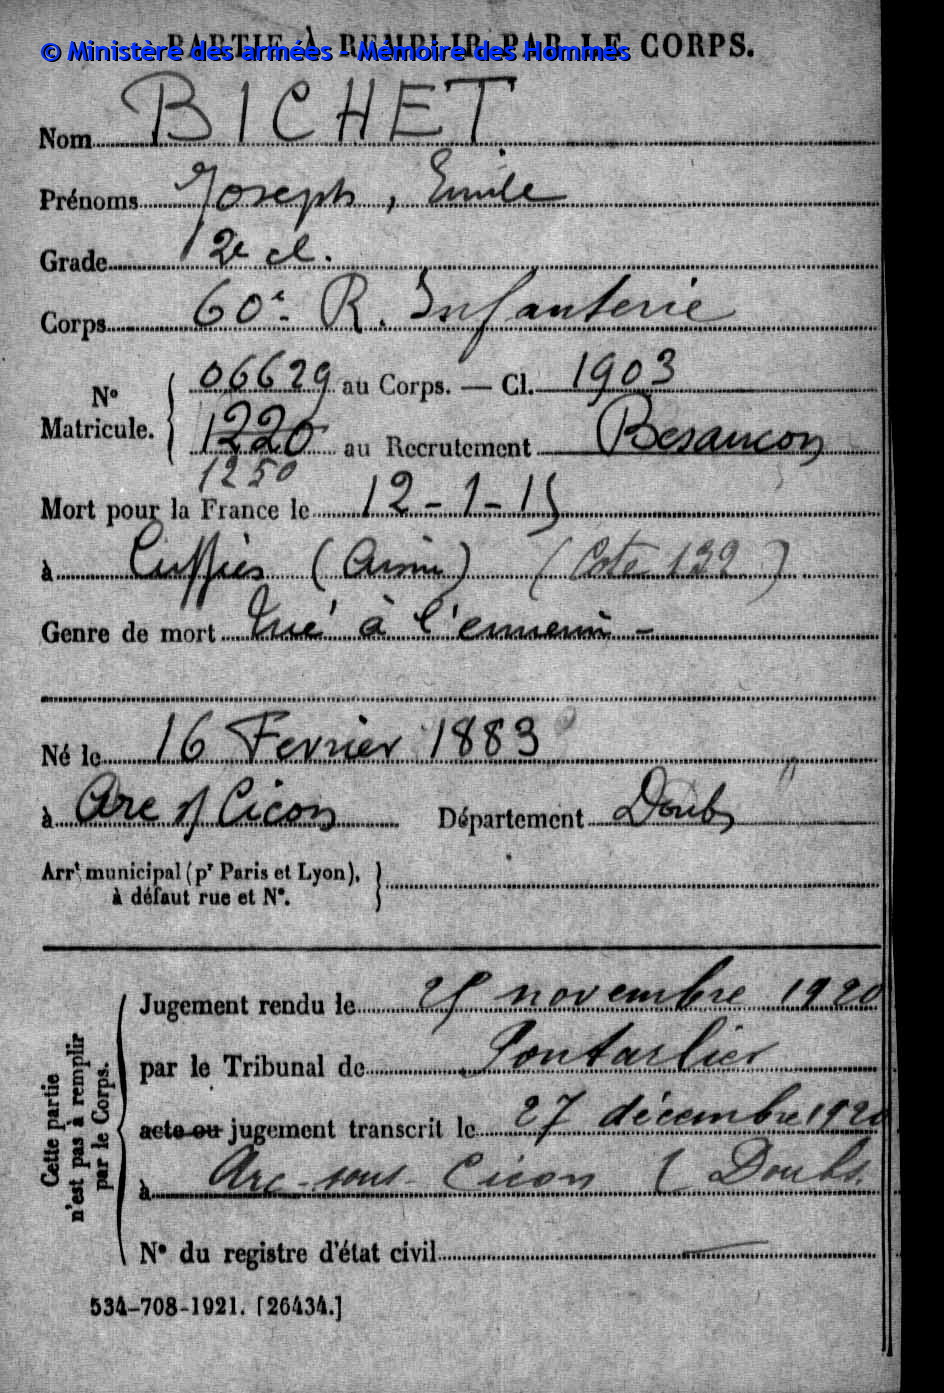 PARTIE À REMPLIR PAR LE CORPS.
© Ministère des armées - Mémoire des Hommes
Nom BICHET
Prénoms Joseph, Emile
Grade 2e cl.
Corps 60e R. Infanterie
N° Matricule. { 06629 au Corps. — Cl. 1903
1220 au Recrutement Besançon
1250
Mort pour la France le 12-1-15
à Cuffies (Aisne) (Cote 132)
Genre de mort Tué à l'ennemi -
Né le 16 Fevrier 1883
à Arc s/ Cicon Département Doubs
Arrt municipal (pr Paris et Lyon), à défaut rue et N°. }
Cette partie n'est pas à remplir par le Corps.
Jugement rendu le 25 novembre 1920
par le Tribunal de Pontarlier
acte ou jugement transcrit le 27 décembre 1920
à Arc-sous-Cicon (Doubs.
N° du registre d'état civil
534-708-1921. [26434.]